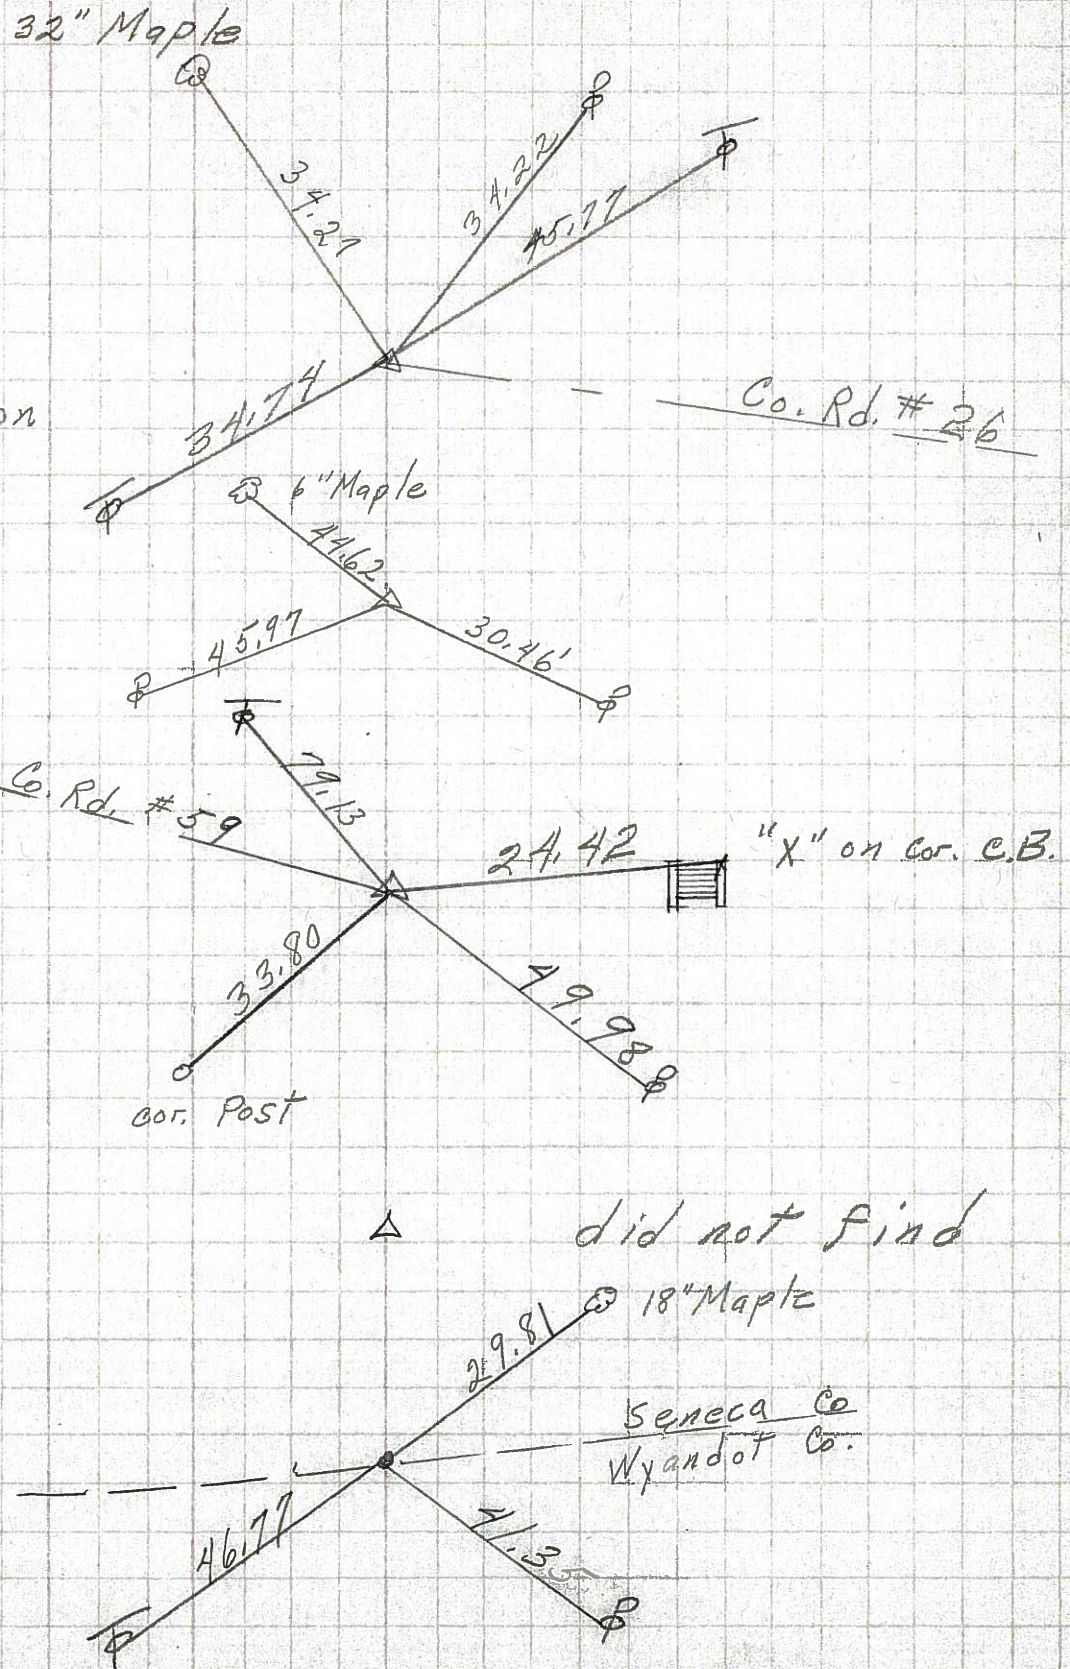 32" Maple
34.27
34.22
45.77
34.74
on
Co. Rd. # 26
6" Maple
44.62
45.97
30.46'
79.13
Co. Rd. # 59
24.42
"X" on cor. C.B.
33.80
49.98
cor. Post
did not find
29.81
18" Maple
Seneca Co
Wyandot Co.
46.77
41.35